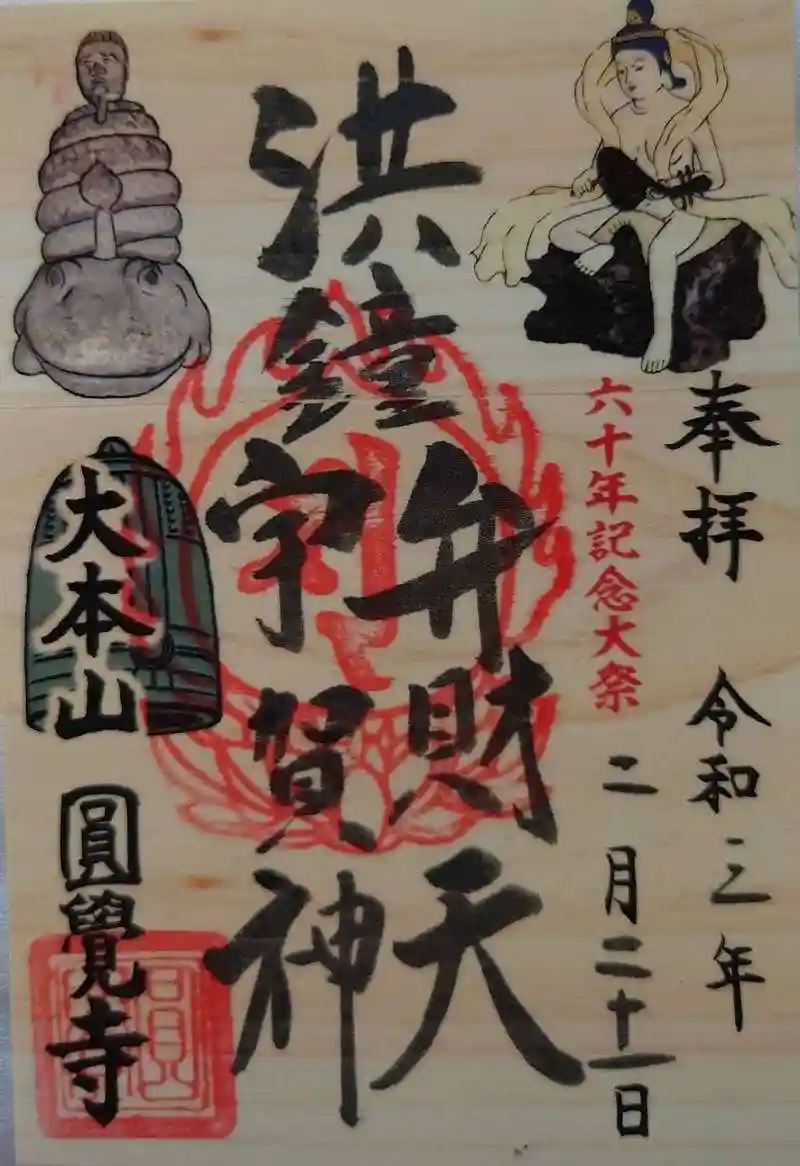 奉拝
令和三年
六十年記念大祭
二月二十一日
洪鐘
弁財天
宇賀神
大本山
圓覺寺